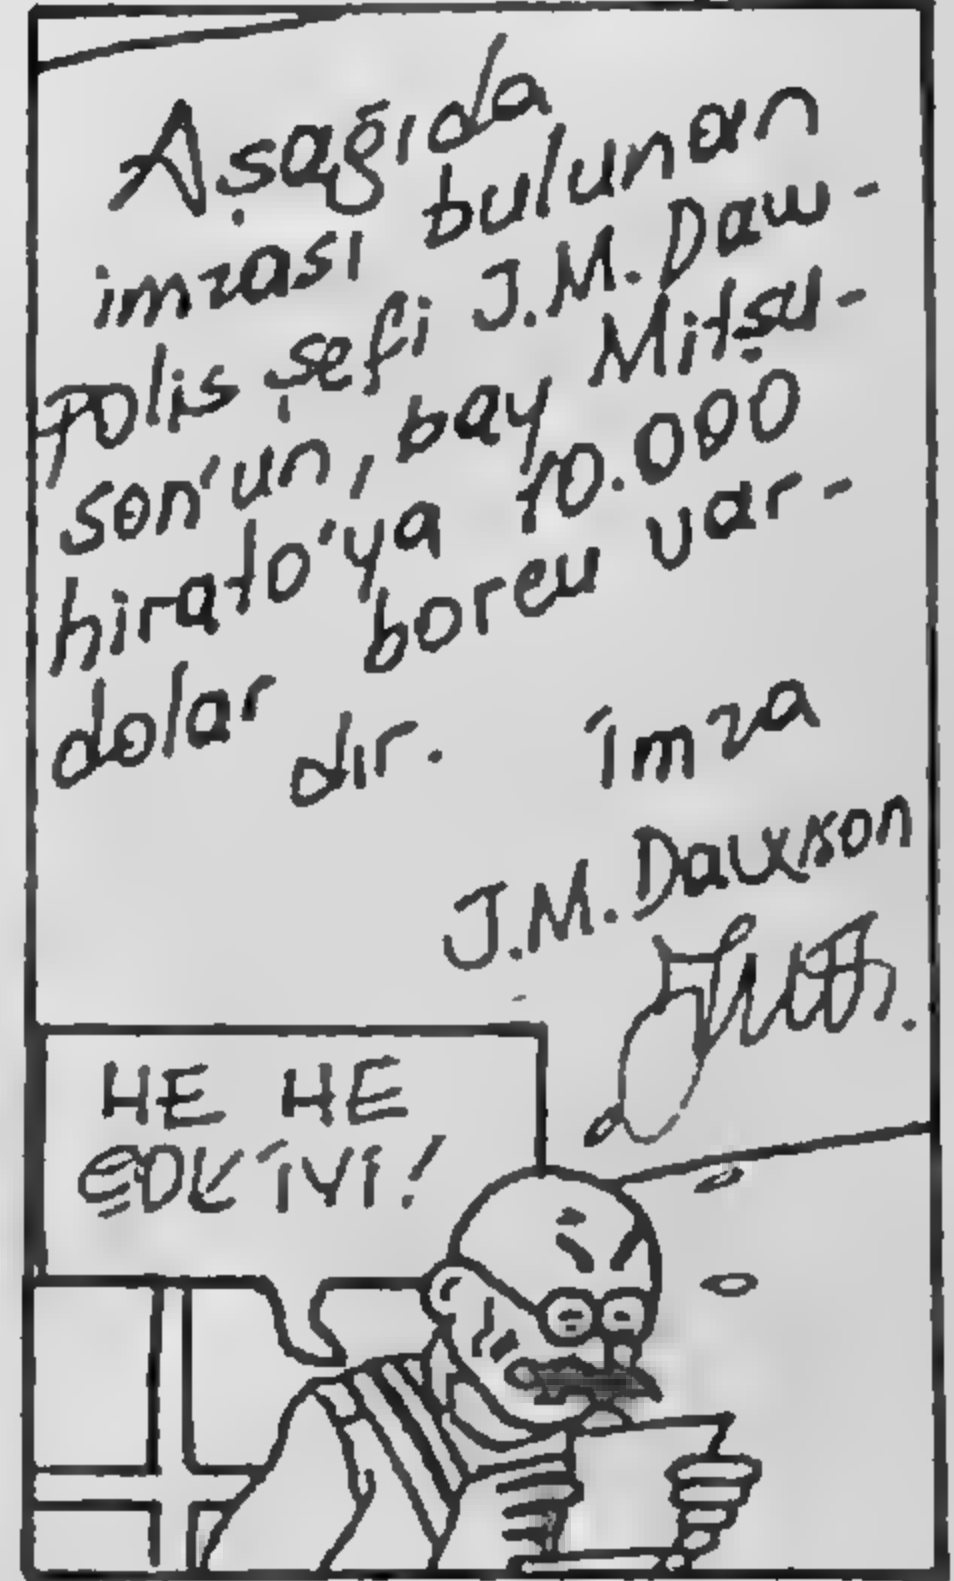 Aşağıda
imzası bulunan
polis şefi J.M. Daw-
son'un, bay Mitşu-
hirato'ya 10.000
dolar borcu var-
dır. İmza
J.M. Dawson
HE HE
ÇOK İYİ!